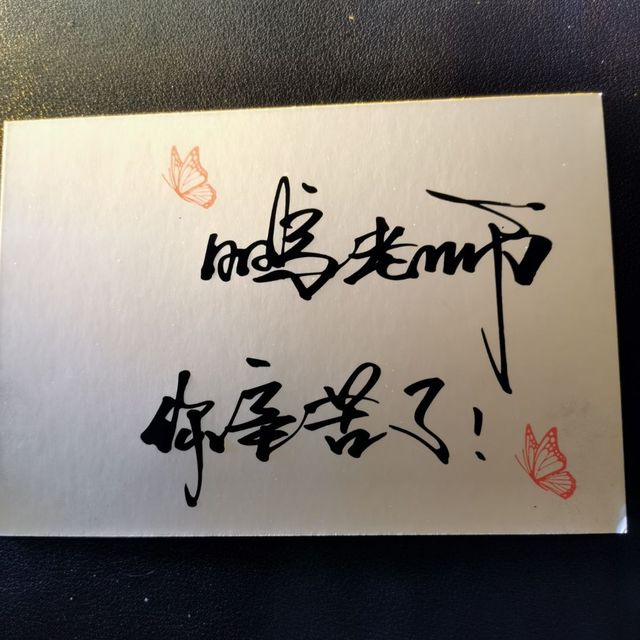 鹏老师
你辛苦了!